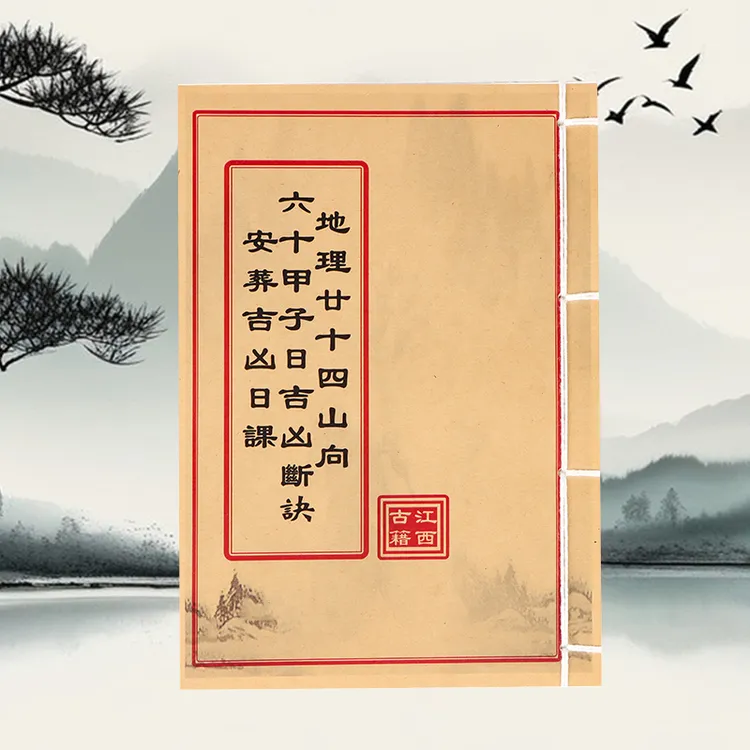 地理廿十四山向
六十甲子日吉凶斷訣
安葬吉凶日課
江西
古籍